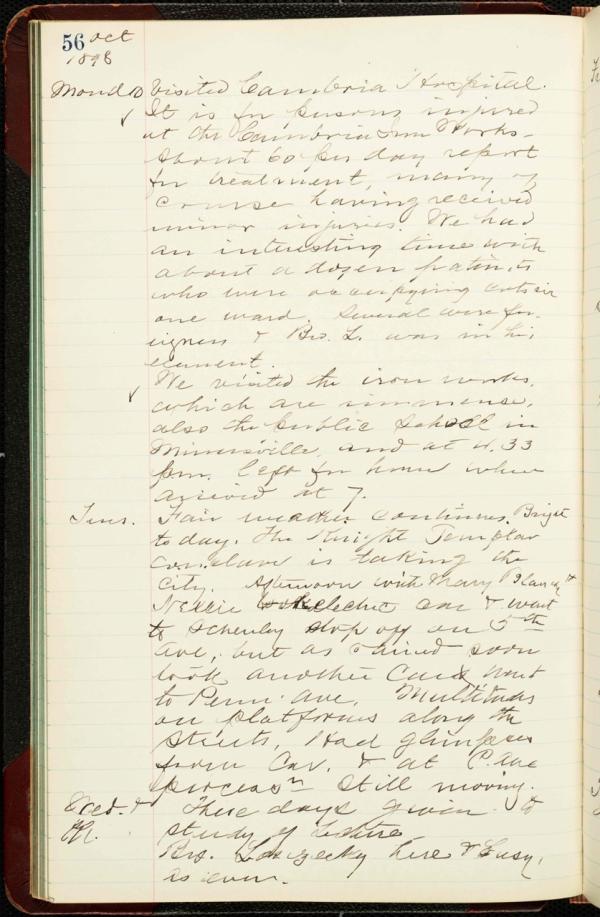 56 Oct
1898
Mond 10 Visited Cambria Hospital.
It is for persons injured
at the Cambria Iron Works -
About 60 per day report
for treatment, many of
course having received
minor injuries. We had
an interesting time with
about a dozen patients
who were occupying cots in
one ward. Several were for-
eigners & Bro. L. was in his
element.
We visited the iron works,
which are immense,
also the public School in
Minersville, and at 4.33
pm. left for home where
arrived at 7.
Tues. Fair weather continues. Bright
today. The Knight Templar
Conclave is taking the
City. Afternoon with Mary Blanch &
Nellie electric car & went
to Schenley stop off on 5th
Ave, but as rained soon
took another Car & went
to Penn Ave. Multitudes
on platforms along the
Streets, Had glimpses
from Car. & at P. Ave
process'n still moving.
Wed. & These days given to
study of
Bro. here & busy,
as ever.